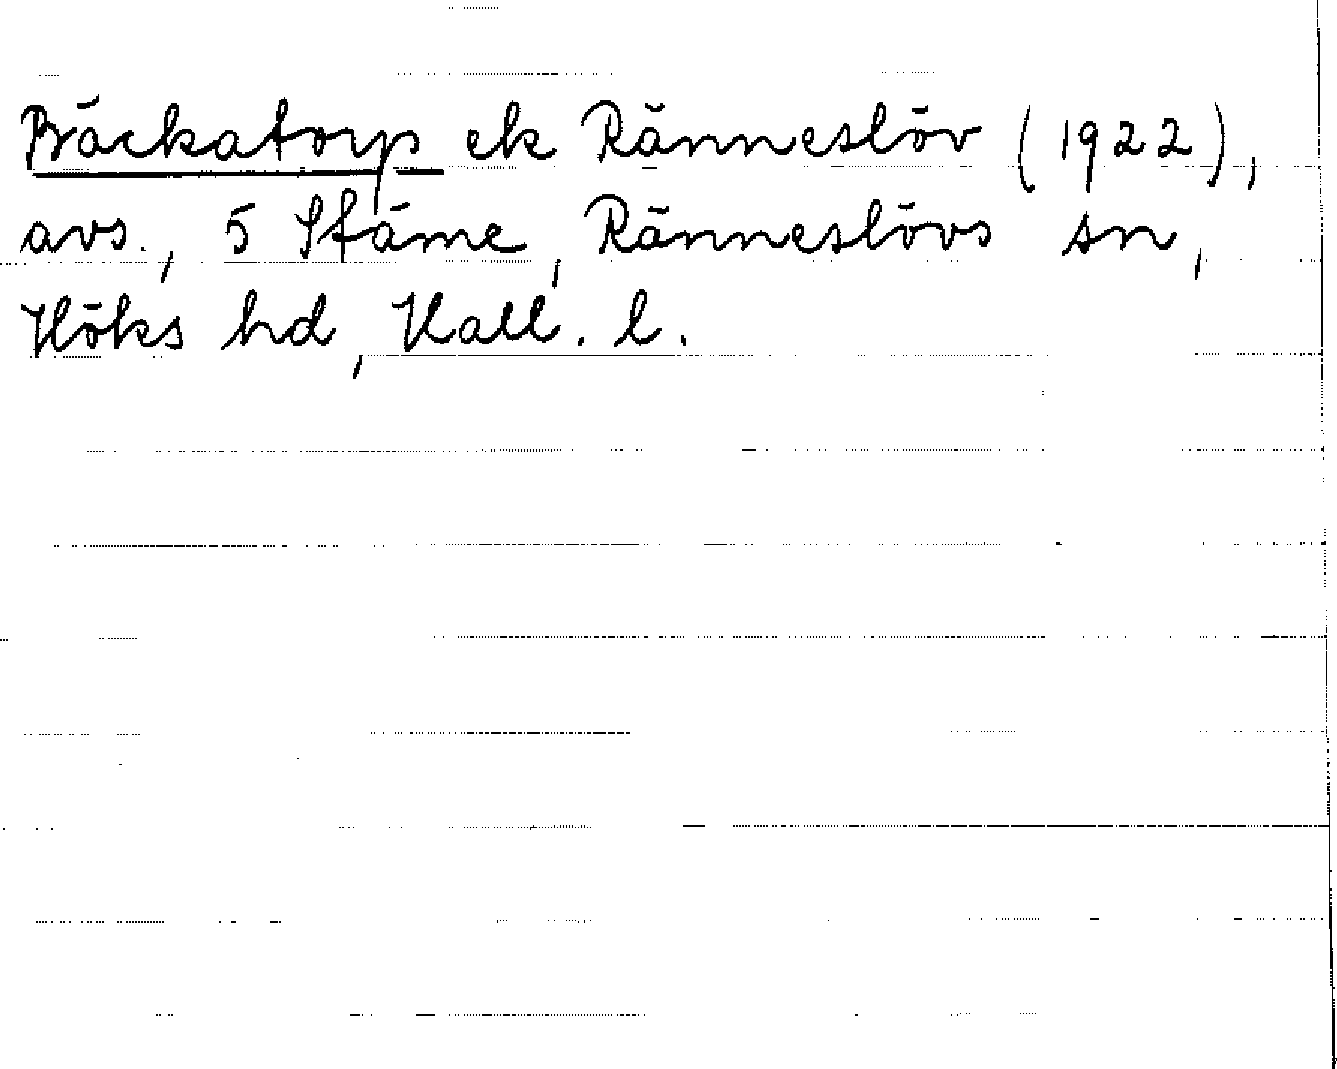 Bäckatorp ek Ränneslöv (1922),
avs., 5 Stäme, Ränneslövs sn,
Höks hd, Hall. l.